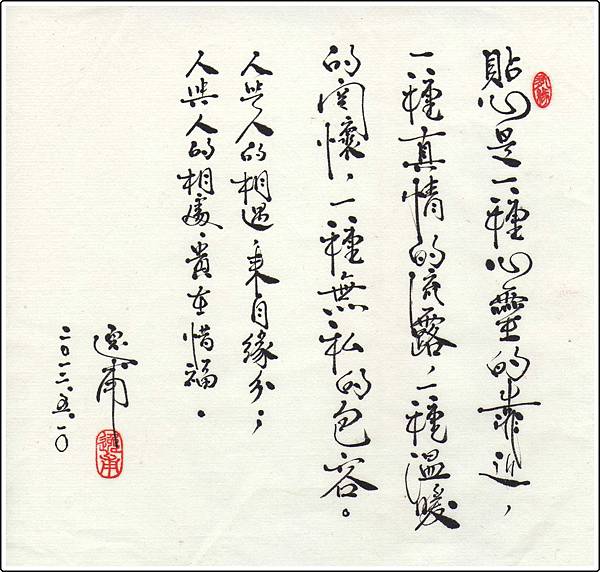 貼心是一種心靈的靠近，
一種真情的流露，一種溫暖
的關懷，一種無私的包容。
人與人的相遇來自緣分；
人與人的相處，貴在惜福。